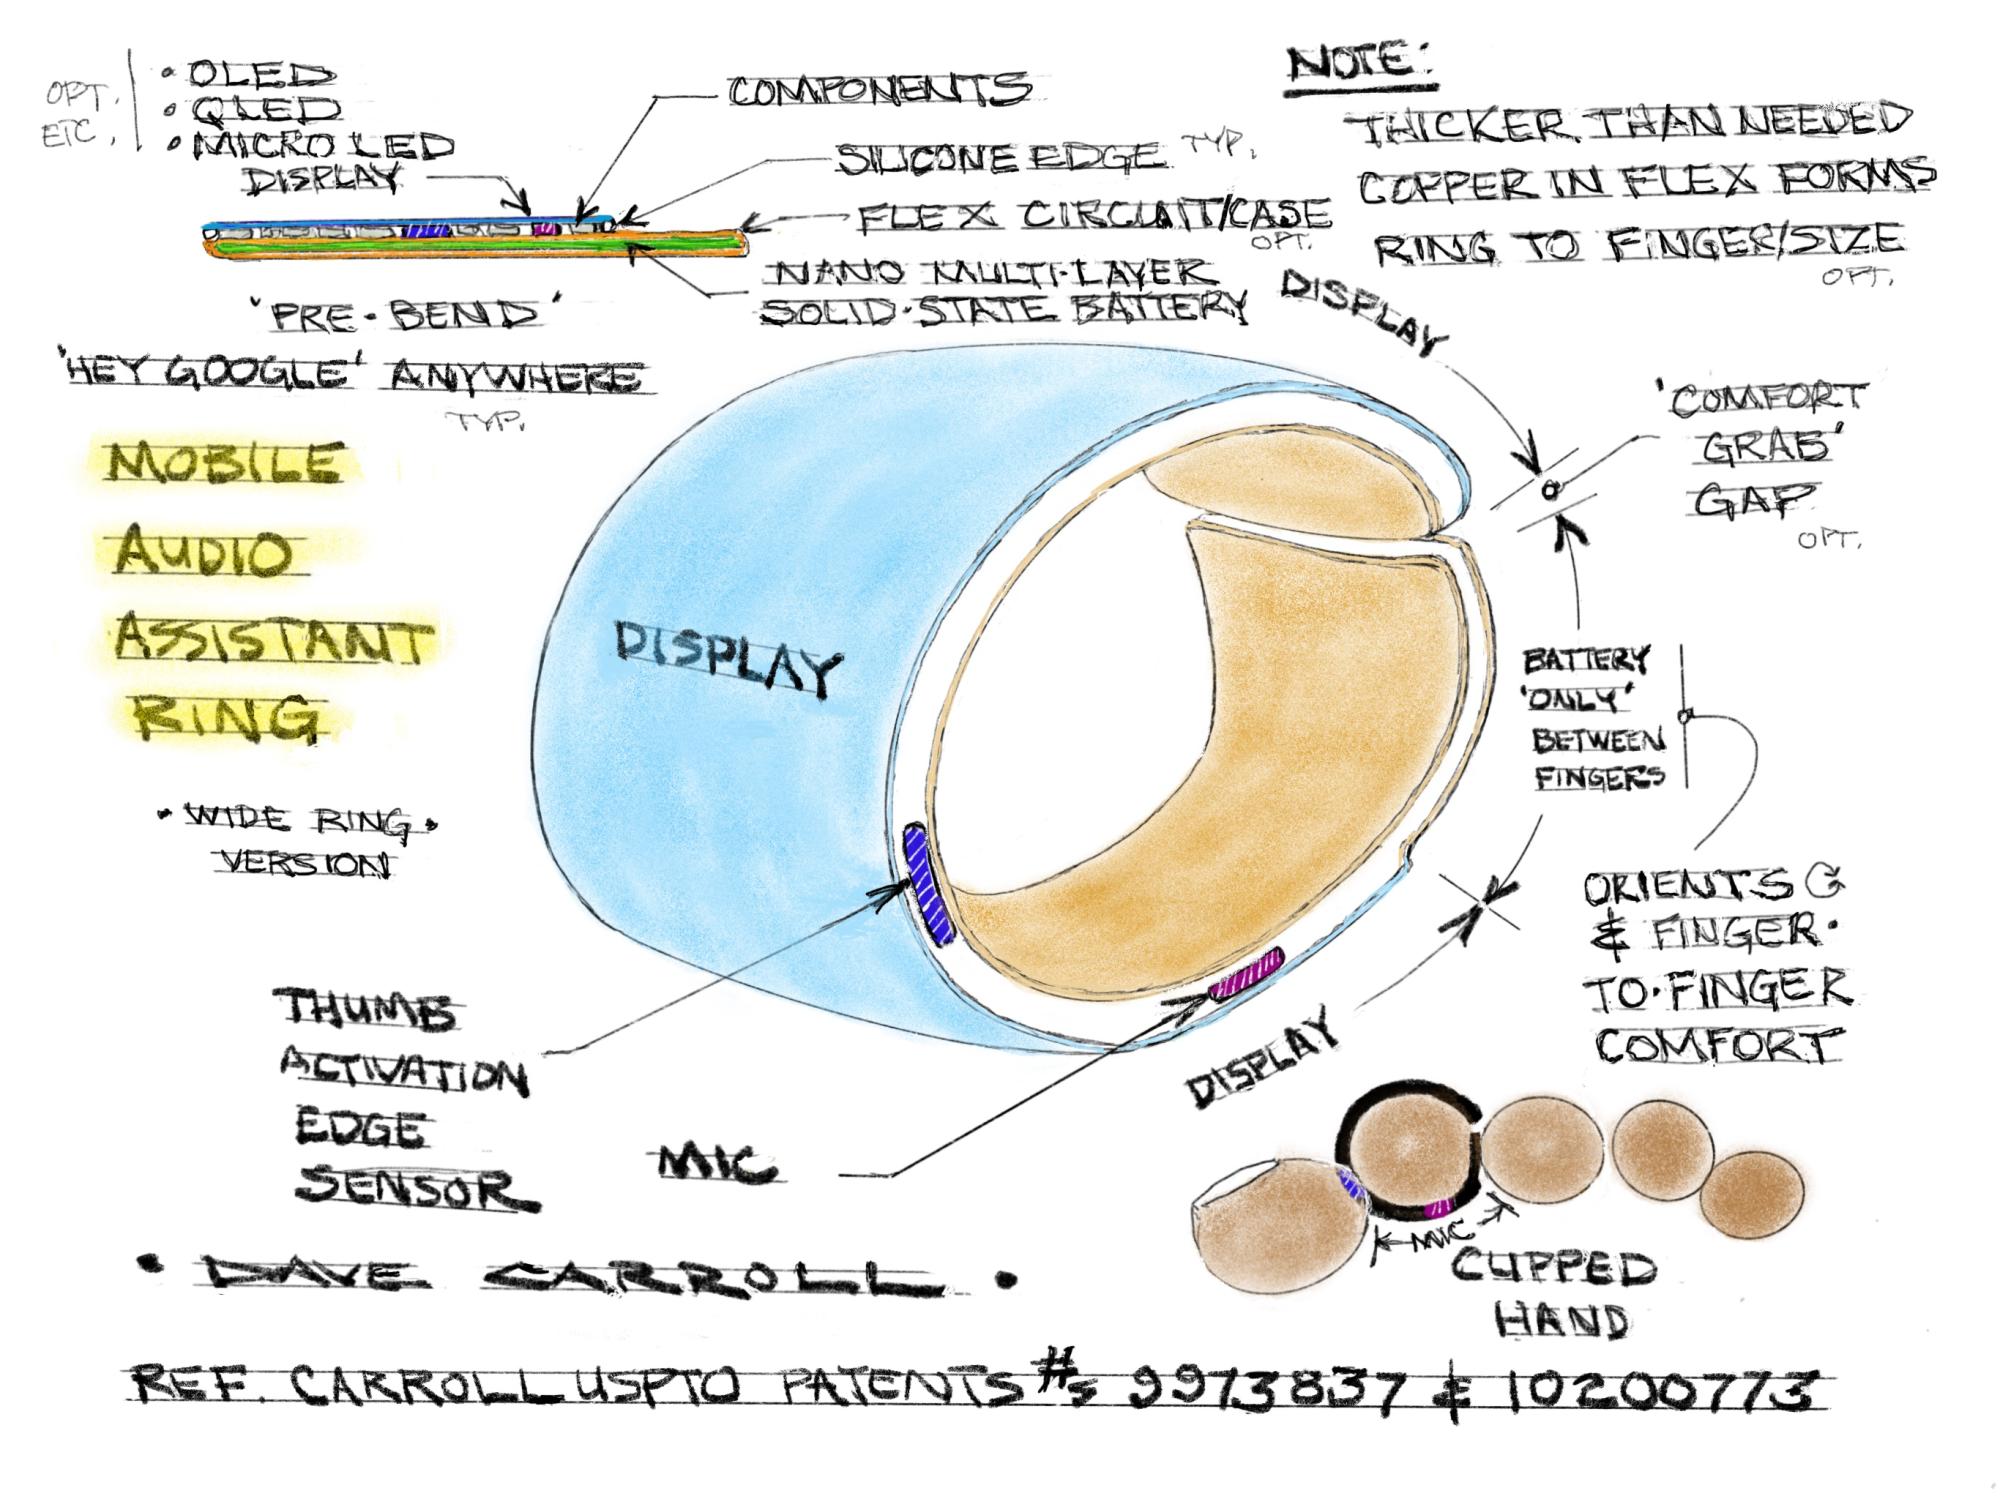 OPT.
ETC.
• OLED
• QLED
• MICRO LED
DISPLAY
COMPONENTS
SILICONE EDGE TYP.
FLEX CIRCUIT/CASE
OPT.
NANO MULTI-LAYER
SOLID-STATE BATTERY
'PRE-BEND'
NOTE:
THICKER THAN NEEDED
COPPER IN FLEX FORMS
RING TO FINGER/SIZE
OPT.
'HEY GOOGLE' ANYWHERE
TYP.
MOBILE
AUDIO
ASSISTANT
RING
• WIDE RING •
VERSION
DISPLAY
DISPLAY
'COMFORT
GRAB'
GAP
OPT.
BATTERY
'ONLY'
BETWEEN
FINGERS
ORIENTS G
& FINGER·
TO·FINGER
COMFORT
DISPLAY
THUMB
ACTIVATION
EDGE
SENSOR
MIC
MIC
CUPPED
HAND
• DAVE CARROLL •
REF. CARROLL USPTO PATENTS #s 9973837 & 10200773